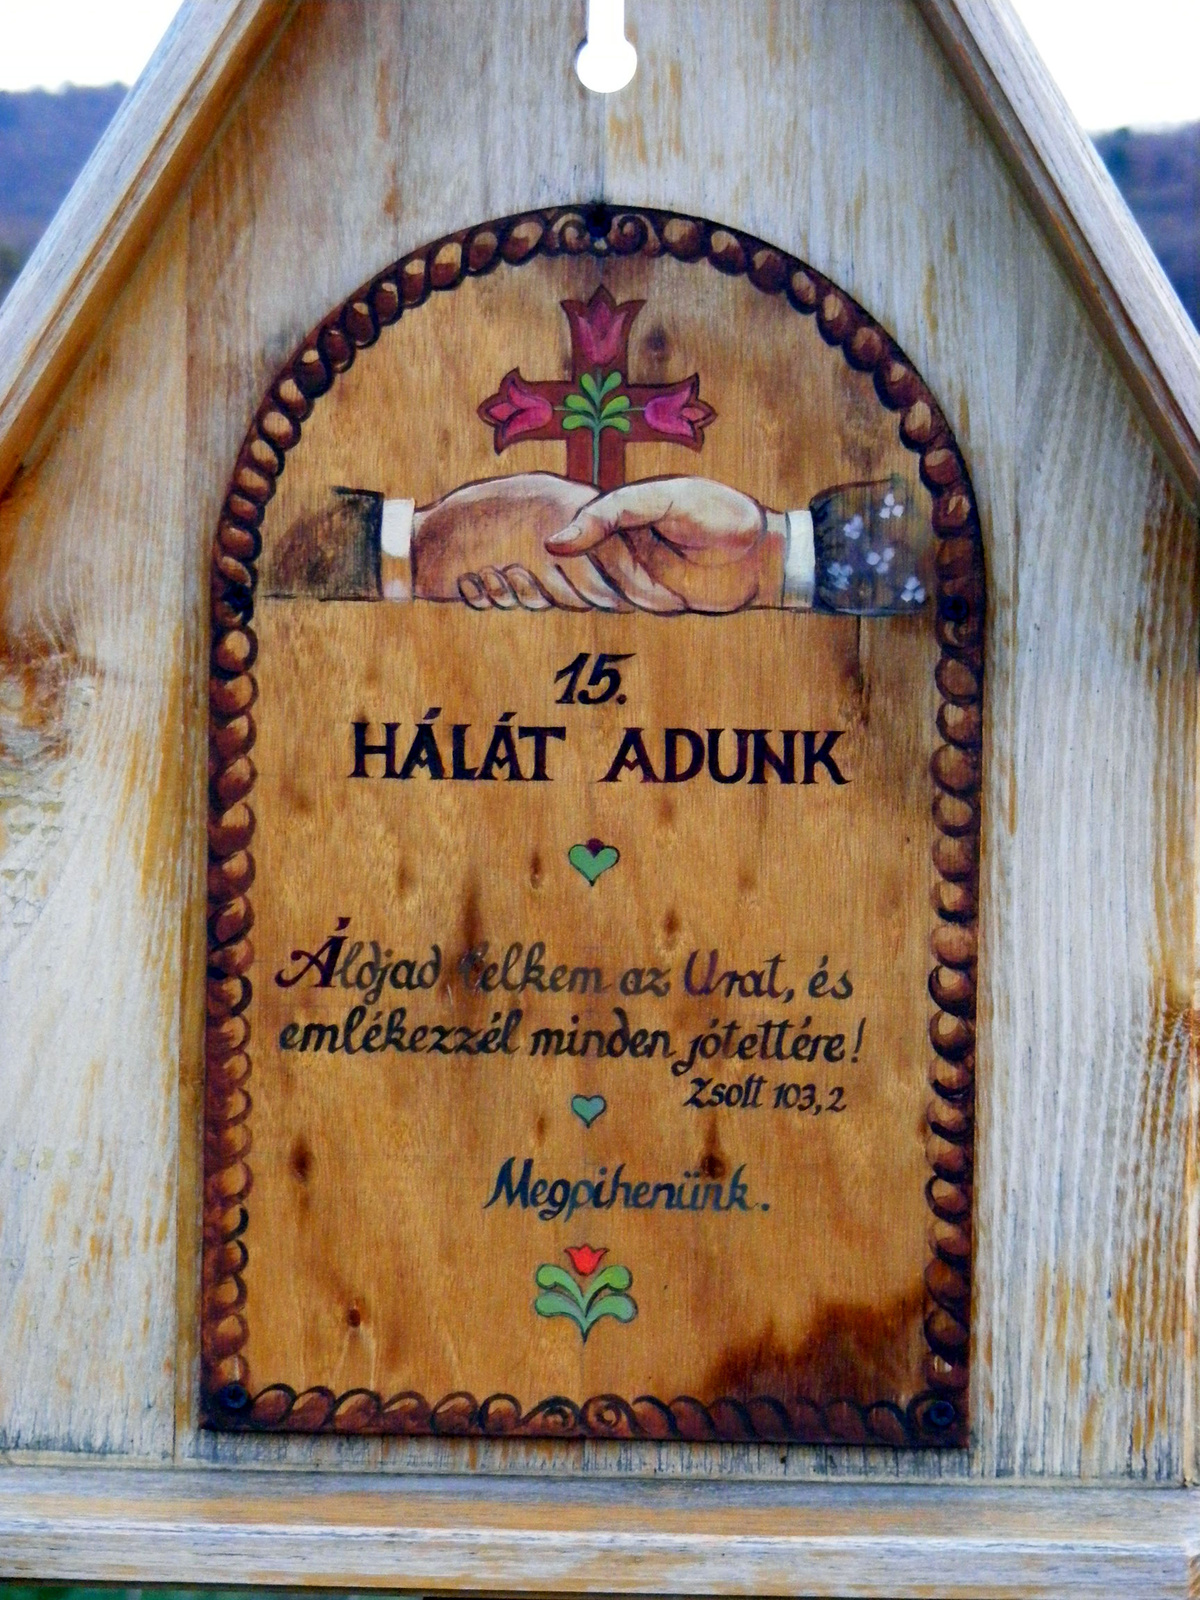 15.
HÁLÁT ADUNK
Áldjad lelkem az Urat, és
emlékezzél minden jótettére!
Zsolt 103,2
Megpihenünk.